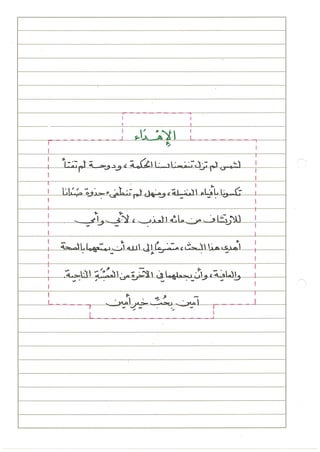 الإهداء
لشمس لم تزل تنفحنا سنا الحكمة، ودوحة لم تفتأ
تكسونا بأفياء الفضيلة، ومنهل لم تنطفئ جذوة صَدَانا
للارتشاف من مائه العذب، لأبي وأمي
أهدي هذا البحث، متضرعًا إلى الله أن يمتعهما بالصحة
والعافية، وأن يجعلهما في الآخرة من الفئة الناجية.
آمين بِحُبِّ خير أمين